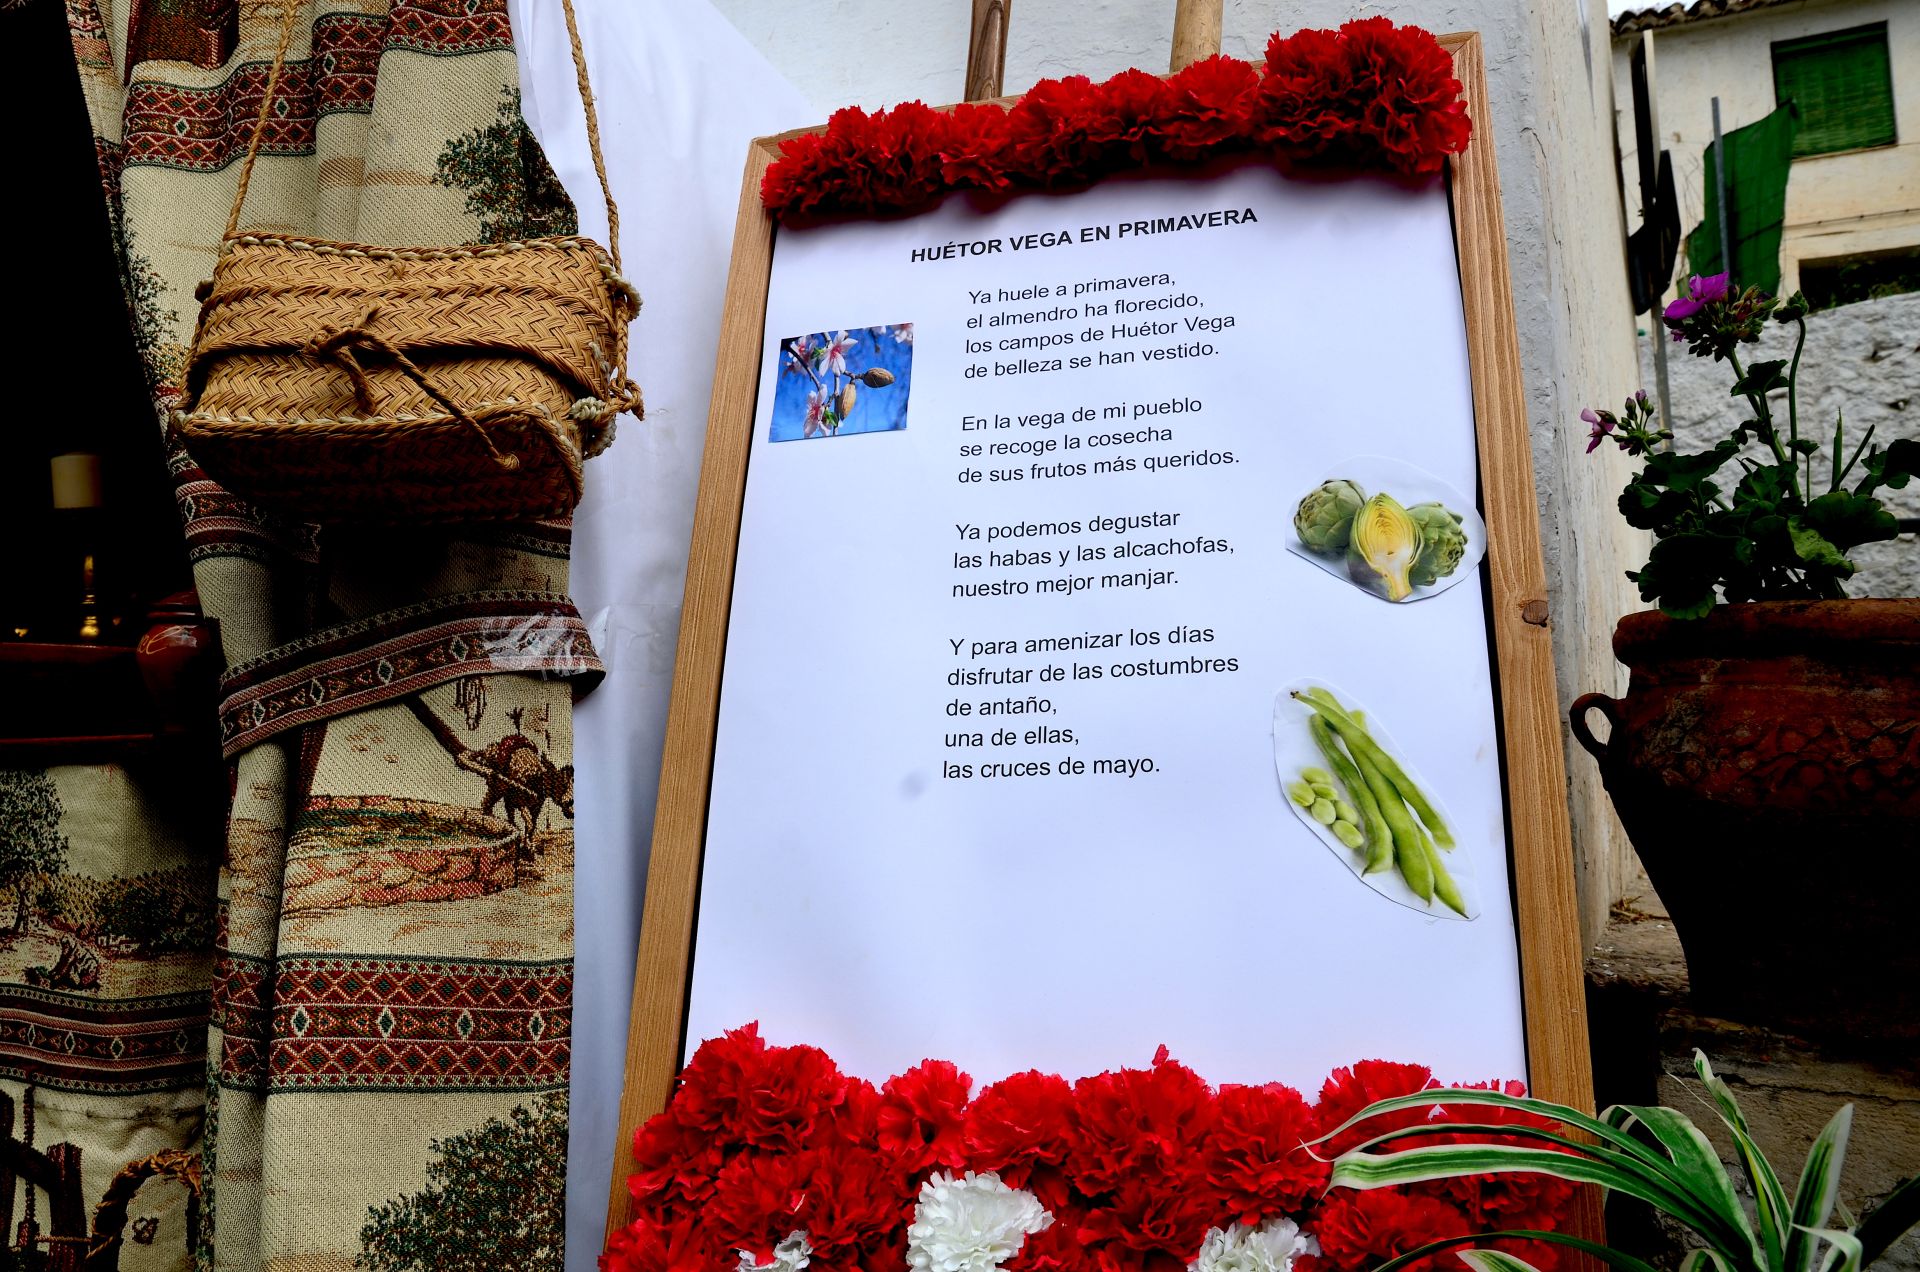 HUÉTOR VEGA EN PRIMAVERA
Ya huele a primavera,
el almendro ha florecido,
los campos de Huétor Vega
de belleza se han vestido.
En la vega de mi pueblo
se recoge la cosecha
de sus frutos más queridos.
Ya podemos degustar
las habas y las alcachofas,
nuestro mejor manjar.
Y para amenizar los días
disfrutar de las costumbres
de antaño,
una de ellas,
las cruces de mayo.